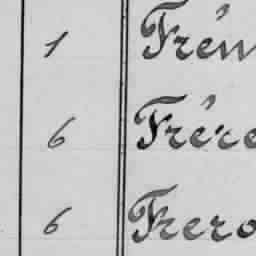 1 Frém
6 Frére
6 Frero